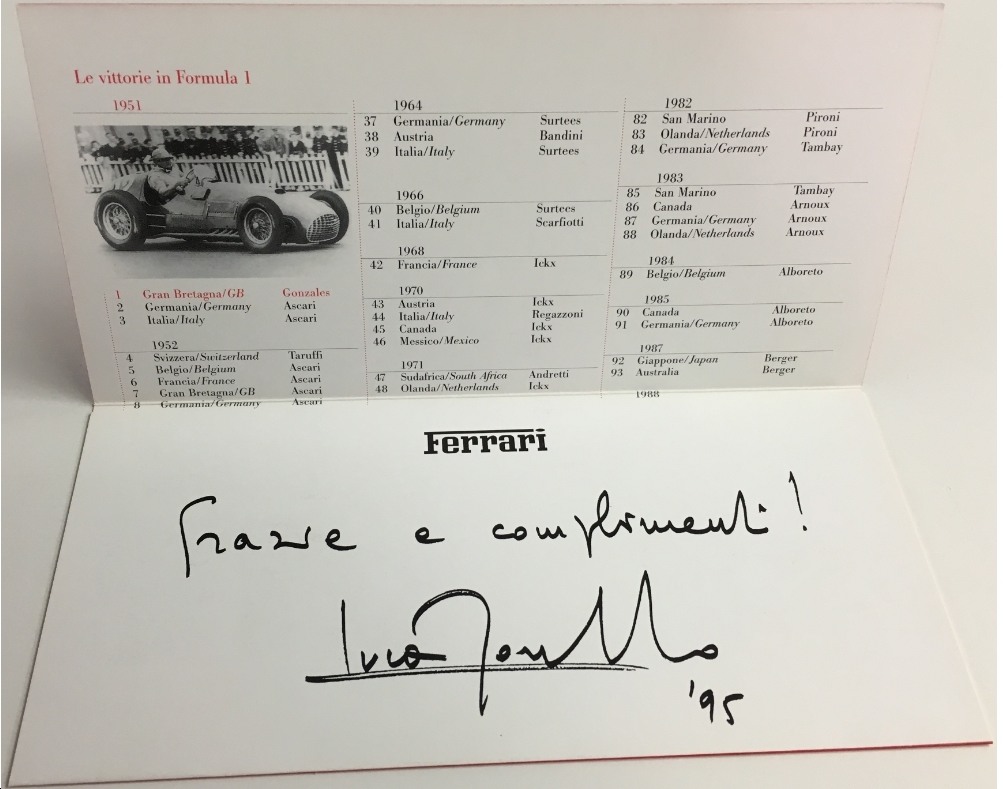 Le vittorie in Formula 1
1951
1 Gran Bretagna/GB Gonzales
2 Germania/Germany Ascari
3 Italia/Italy Ascari
1952
4 Svizzera/Switzerland Taruffi
5 Belgio/Belgium Ascari
6 Francia/France Ascari
7 Gran Bretagna/GB Ascari
8 Germania/Germany Ascari
1964
37 Germania/Germany Surtees
38 Austria Bandini
39 Italia/Italy Surtees
1966
40 Belgio/Belgium Surtees
41 Italia/Italy Scarfiotti
1968
42 Francia/France Ickx
1970
43 Austria Ickx
44 Italia/Italy Regazzoni
45 Canada Ickx
46 Messico/Mexico Ickx
1971
47 Sudafrica/South Africa Andretti
48 Olanda/Netherlands Ickx
1982
82 San Marino Pironi
83 Olanda/Netherlands Pironi
84 Germania/Germany Tambay
1983
85 San Marino Tambay
86 Canada Arnoux
87 Germania/Germany Arnoux
88 Olanda/Netherlands Arnoux
1984
89 Belgio/Belgium Alboreto
1985
90 Canada Alboreto
91 Germania/Germany Alboreto
1987
92 Giappone/Japan Berger
93 Australia Berger
1988
Ferrari
Grazie e complimenti!
Luca
'95